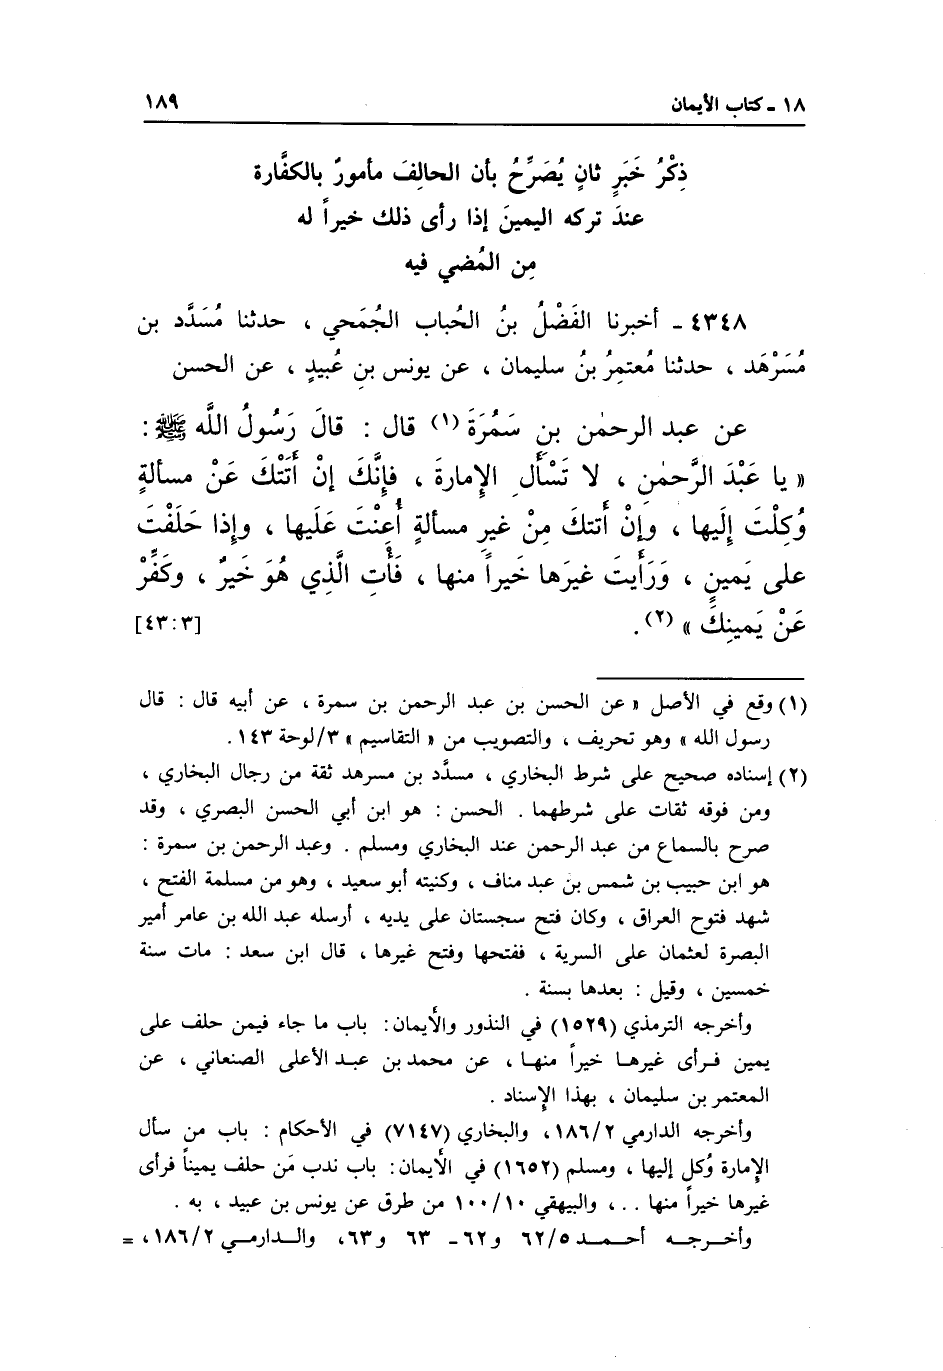 ١٨ - كتاب الأيمان ١٨٩
ذِكْرُ خَبَرٍ ثانٍ يُصَرِّحُ بأن الحالِفَ مأمورٌ بالكفَّارة
عندَ تركه اليمينَ إذا رأى ذلك خيراً له
مِن المُضي فيه
٤٣٤٨ - أخبرنا الفَضْلُ بنُ الحُباب الجُمَحي ، حدثنا مُسَدَّد بن
مُسَرْهَد ، حدثنا مُعتمِرُ بنُ سليمان ، عن يونس بنِ عُبيدٍ ، عن الحسن
عن عبد الرحمٰن بنِ سَمُرَةَ (١) قال : قالَ رَسُولُ اللَّه ﷺ :
« يا عَبْدَ الرَّحمٰنِ ، لا تَسْأَلِ الإِمارةَ ، فإِنَّكَ إنْ أَتَتْكَ عَنْ مسألةٍ
وُكِلْتَ إلَيها ، وإنْ أتتكَ مِنْ غيرِ مسألةٍ أُعِنْتَ عَلَيها ، وإذا حَلَفْتَ
على يَمينٍ ، وَرَأَيتَ غيرَها خَيراً منها ، فَأْتِ الَّذِي هُوَ خَيرٌ ، وكَفِّرْ
عَنْ يَمينِكَ » (٢) . [٤٣:٣]
(١) وقع في الأصل « عن الحسن بن عبد الرحمن بن سمرة ، عن أبيه قال : قال
رسول الله » وهو تحريف ، والتصويب من « التقاسيم » ٣/لوحة ١٤٣ .
(٢) إسناده صحيح على شرط البخاري ، مسدَّد بن مسرهد ثقة من رجال البخاري ،
ومن فوقه ثقات على شرطهما . الحسن : هو ابن أبي الحسن البصري ، وقد
صرح بالسماع من عبد الرحمن عند البخاري ومسلم . وعبد الرحمن بن سمرة :
هو ابن حبيب بن شمس بن عبد مناف ، وكنيته أبو سعيد ، وهو من مسلمة الفتح ،
شهد فتوح العراق ، وكان فتح سجستان على يديه ، أرسله عبد الله بن عامر أمير
البصرة لعثمان على السرية ، ففتحها وفتح غيرها ، قال ابن سعد : مات سنة
خمسين ، وقيل : بعدها بسنة .
وأخرجه الترمذي (١٥٢٩) في النذور والأيمان: باب ما جاء فيمن حلف على
يمين فرأى غيرها خيراً منها ، عن محمد بن عبد الأعلى الصنعاني ، عن
المعتمر بن سليمان ، بهذا الإِسناد .
وأخرجه الدارمي ١٨٦/٢، والبخاري (٧١٤٧) في الأحكام : باب من سأل
الإمارة وُكل إليها ، ومسلم (١٦٥٢) في الأيمان: باب ندب مَن حلف يميناً فرأى
غيرها خيراً منها ...، والبيهقي ١٠٠/١٠ من طرق عن يونس بن عبيد ، به .
وأخرجه أحمد ٦٢/٥ و٦٢ - ٦٣ و٦٣، والدارمي ١٨٦/٢، =